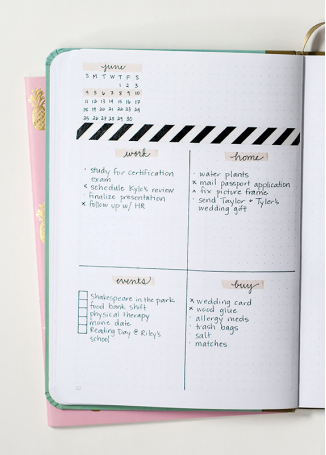 june
S M T W T F S
1 2 3
4 5 6 7 8 9 10
11 12 13 14 15 16 17
18 19 20 21 22 23 24
25 26 27 28 29 30
work
· study for certification
exam
x schedule Kyle's review
· finalize presentation
x follow up w/ HR
home
· water plants
x mail passport application
x fix picture frame
· send Taylor + Tyler's
wedding gift
events
Shakespeare in the park
food bank shift
physical therapy
movie date
Reading Day @ Riby's
school
buy
x wedding card
x wood glue
· allergy meds
· trash bags
· salt
· matches